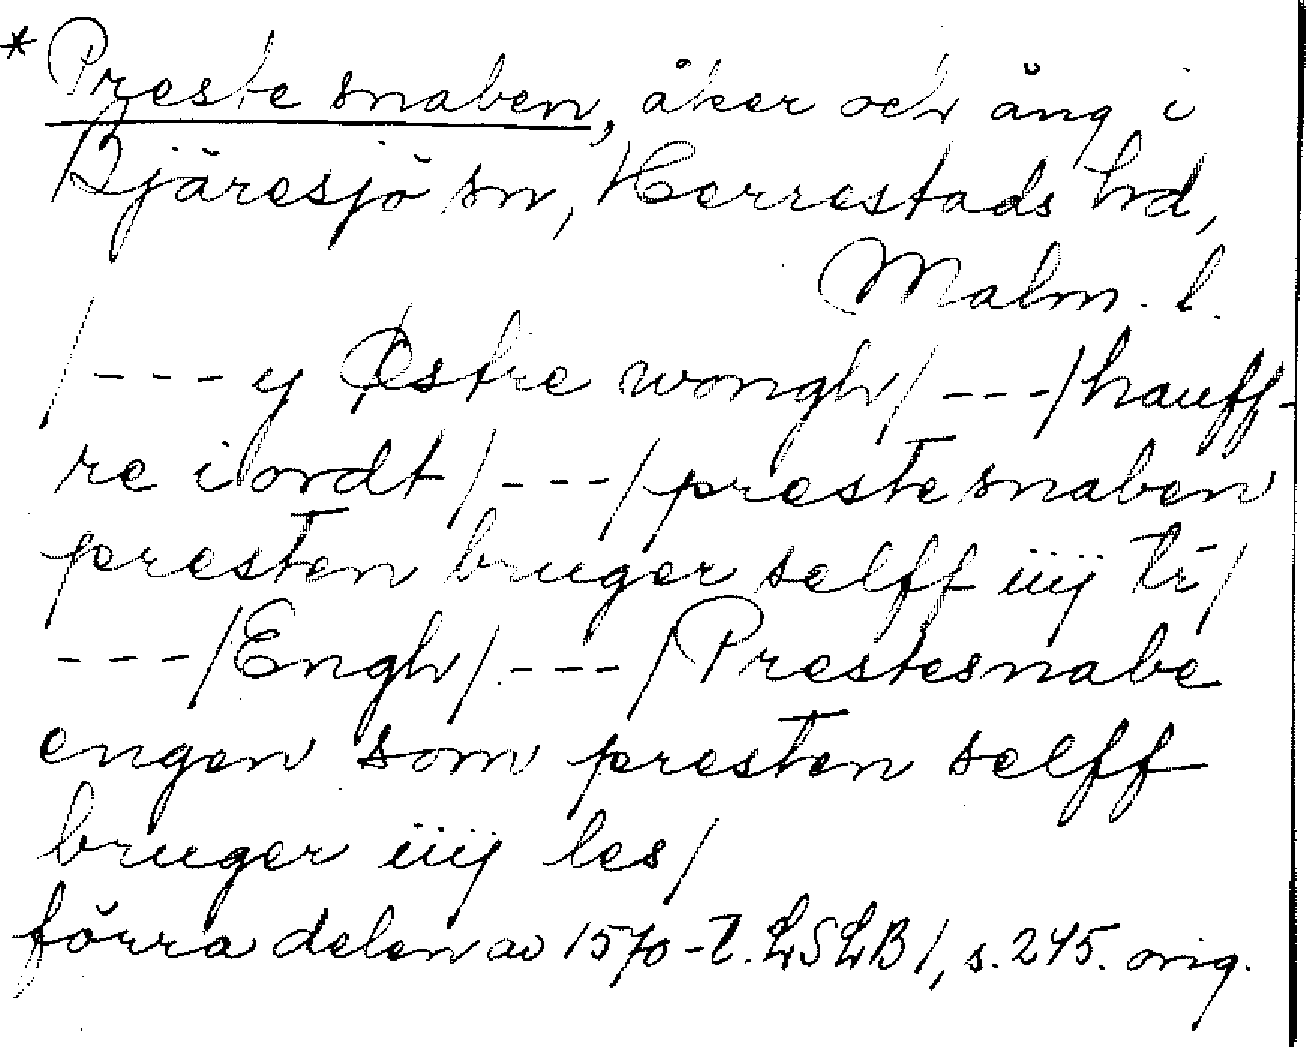 * Preste snaben, åker och äng i
Bjäresjö sn, Herrestads hd,
Malm. l.
/---y Østre wongh/---/hauff-
re iordt/---/prestesnaben
presten bruger selff iiij
---/Engh/---/Prestesnabe
engen som presten selff
bruger iiij les/
förra delen av 1570-t. LSLB 1, s. 245. orig.